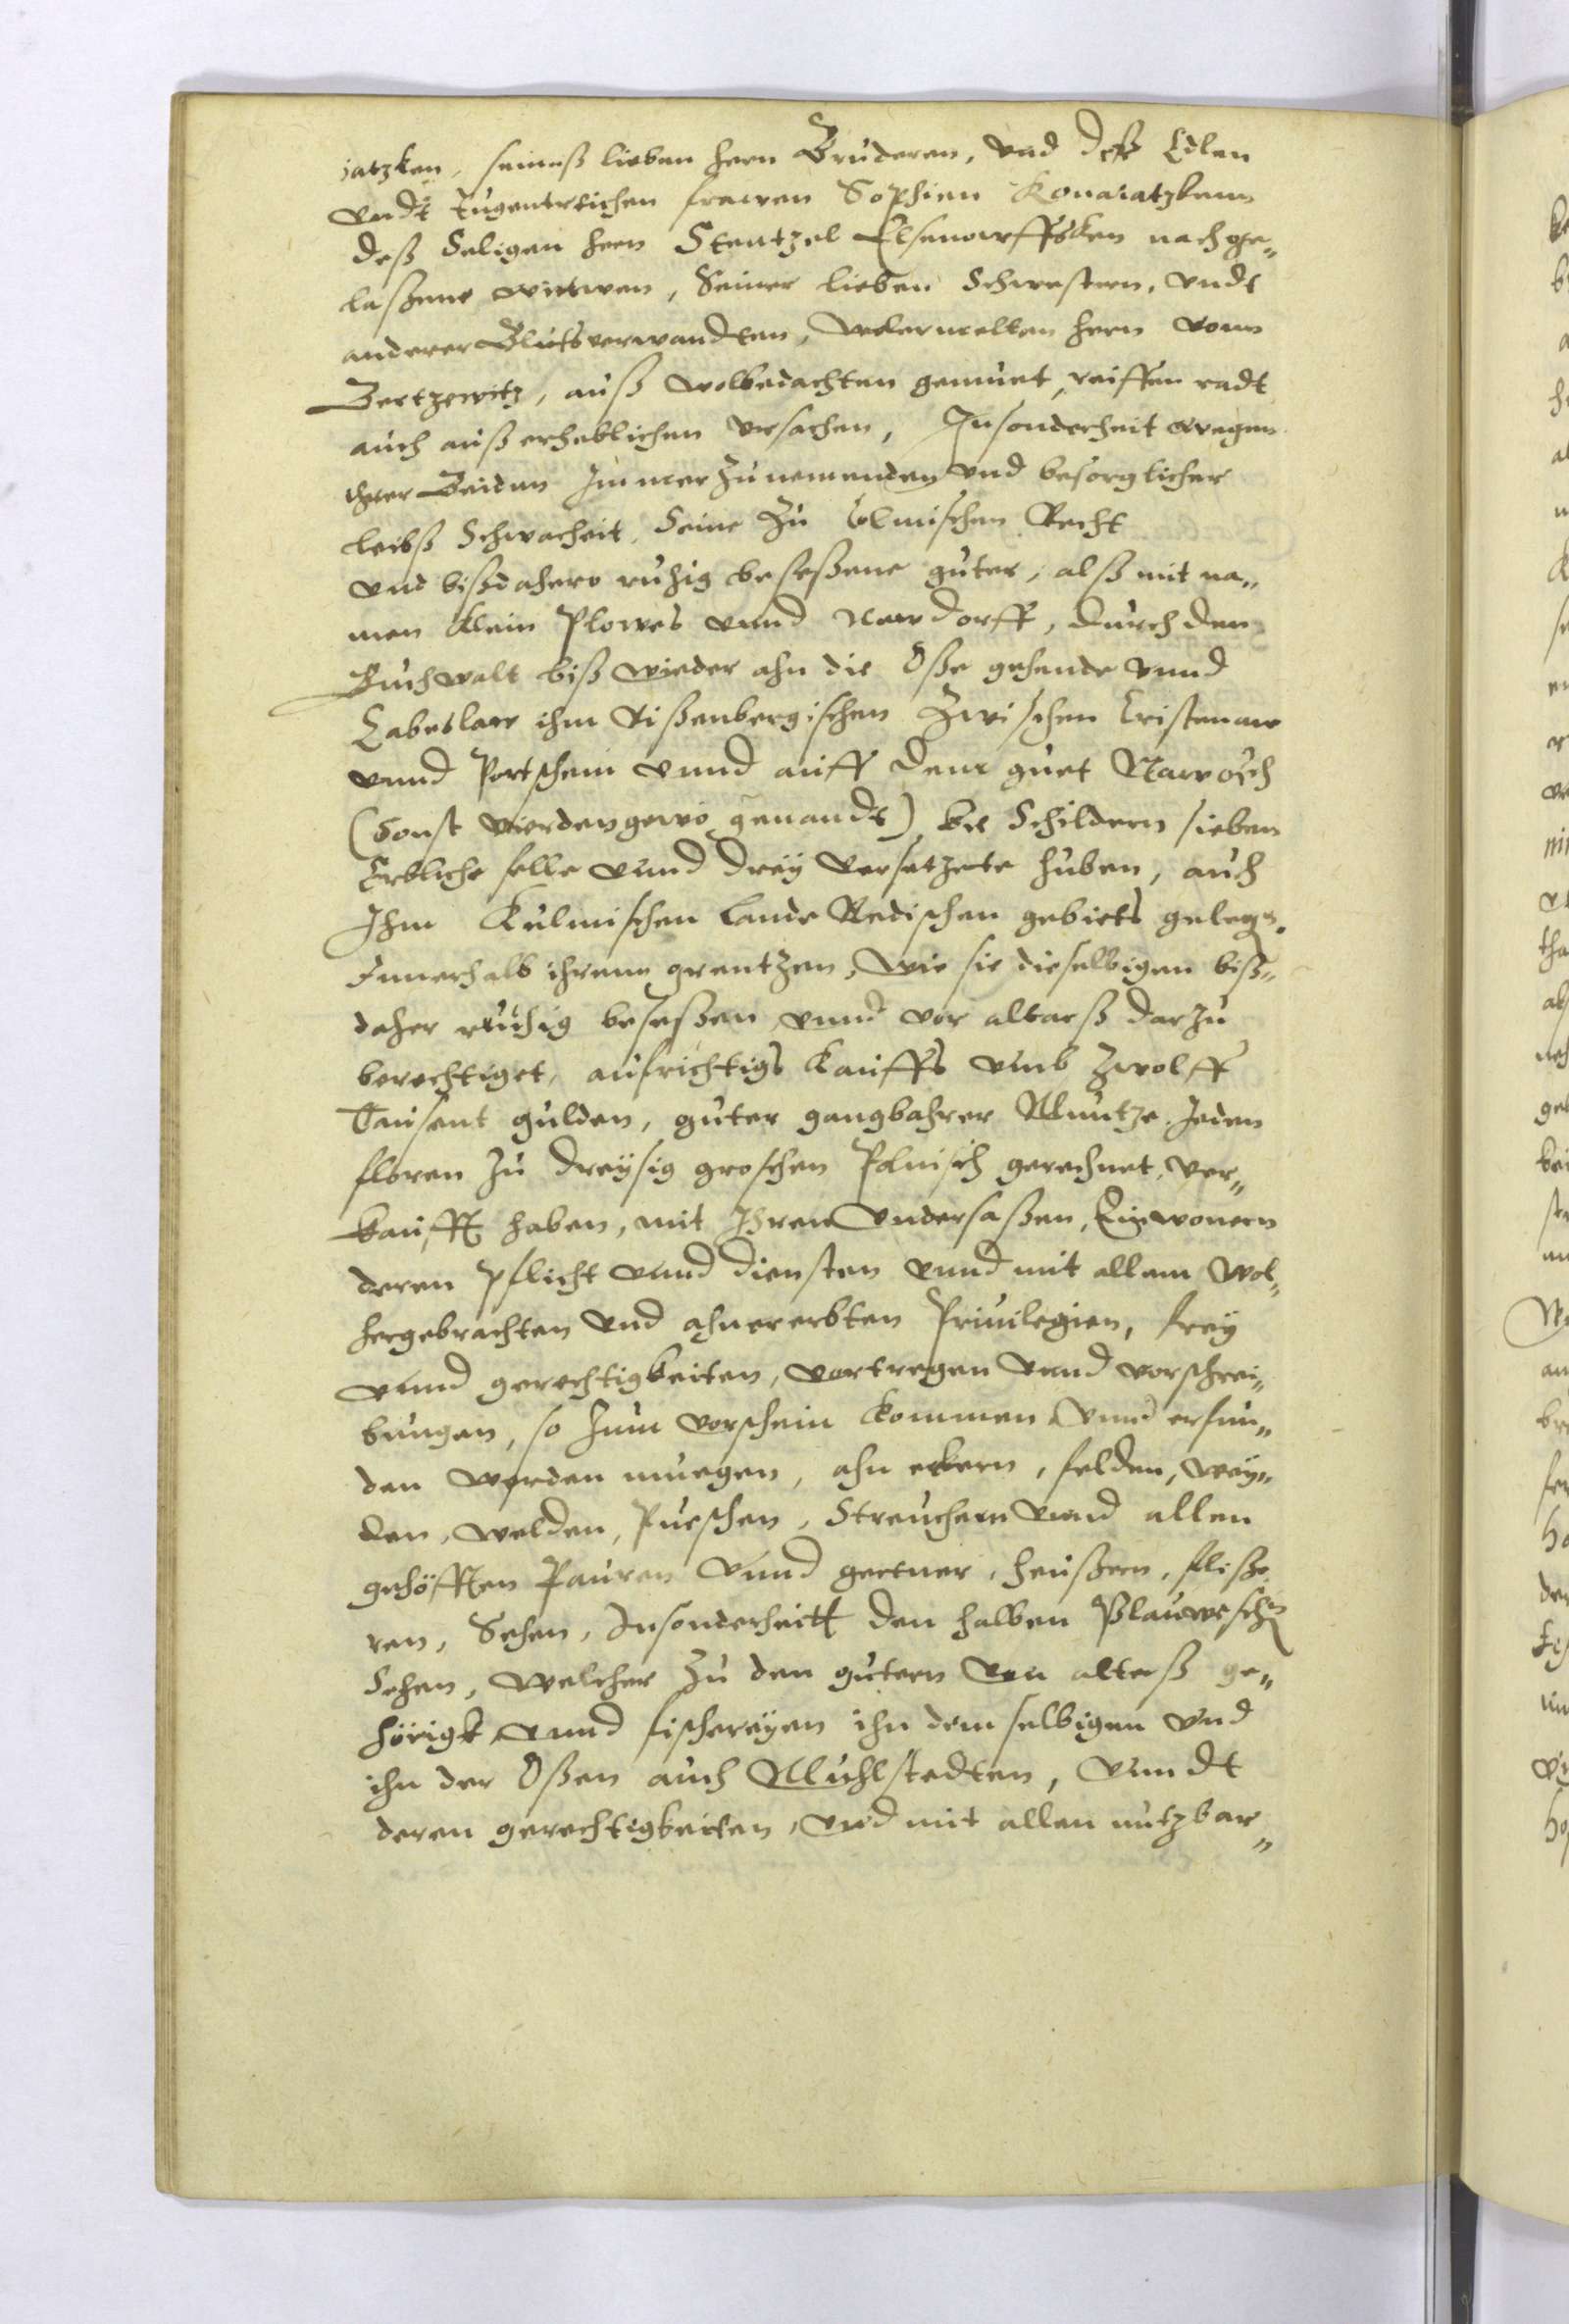 iatzken, seineß lieben hern Bruderen, vnd deß Edlen
vndt tugentreichen frawen Sophien Konaiatzkenn
deß Seligen hern Stentzel Elsenowffsken nachge„
laßene wittwen, Seiner lieben Schwestern, vndt
anderer Blutsverwandten, wolermelten hern vonn
Bertzewitz, auß wolbedachten gemuet, reiffen radt
auch auß erheblichen vrsachen, Insonderheit wegen
ihrer Beiden Immer zunemenden vnd besorglicher
leibß Schwacheit, Seine zu Colmischen Recht
vnd bißdahero ruhig beseßene guter, alß mit na„
men klein Plowes vnnd Newdorff, durch den
Buchwalt biß wieder ahn die Oße gehende vnnd
Labeslaw ihm Rißenbergischen Zwischen Cristenaw
vnnd Portschein vnnd auff dem guet Nawosch
(Sonst Vierdengewo genandt) bie Schildern sieben
Erbliche felle vnnd drey versatzete huben, auch
Ihm Kulmischen Lande Redischen gebiets gelegen.
Innerhalb ihrenn grentzen, wie sie dieselbigen biß„
daher ruhig beseßen vnnd vor alterß darzu
berechtiget, aufrichtigs kauffs vmb zwolff
Tausent gulden, guter gangbahrer Muntze Jeden
floren zu dreysig groschen Polnisch gerechnet, ver„
kaufft haben, mit Ihren Vndersaßen, Einwonern
deren pflicht vnnd diensten vnnd mit allem wol„
hergebrachten vnd ahnererbten Priuilegien, frey
vnnd gerechtigkeiten, vertregen vnnd vorschrei„
bungen, so zum vorschein kommen vnnd erfun„
den werden muegen, ahn eckern, felden, wey„
den, welden, Pueschen, Streuchern vnnd allen
gehöfften Pauren vnnd gertner, heußern, fliße
ren, Sehen, Insonderheitt den halben Plauweschen
Sehen, welcher zu den gutern von alterß ge„
hörigk, vnnd fischereyen ihn demselbigen vnd
ihn der Oßen auch Muhlstedten, vnndt
deren gerechtigkeiten, vnd mit allen nutzbar„